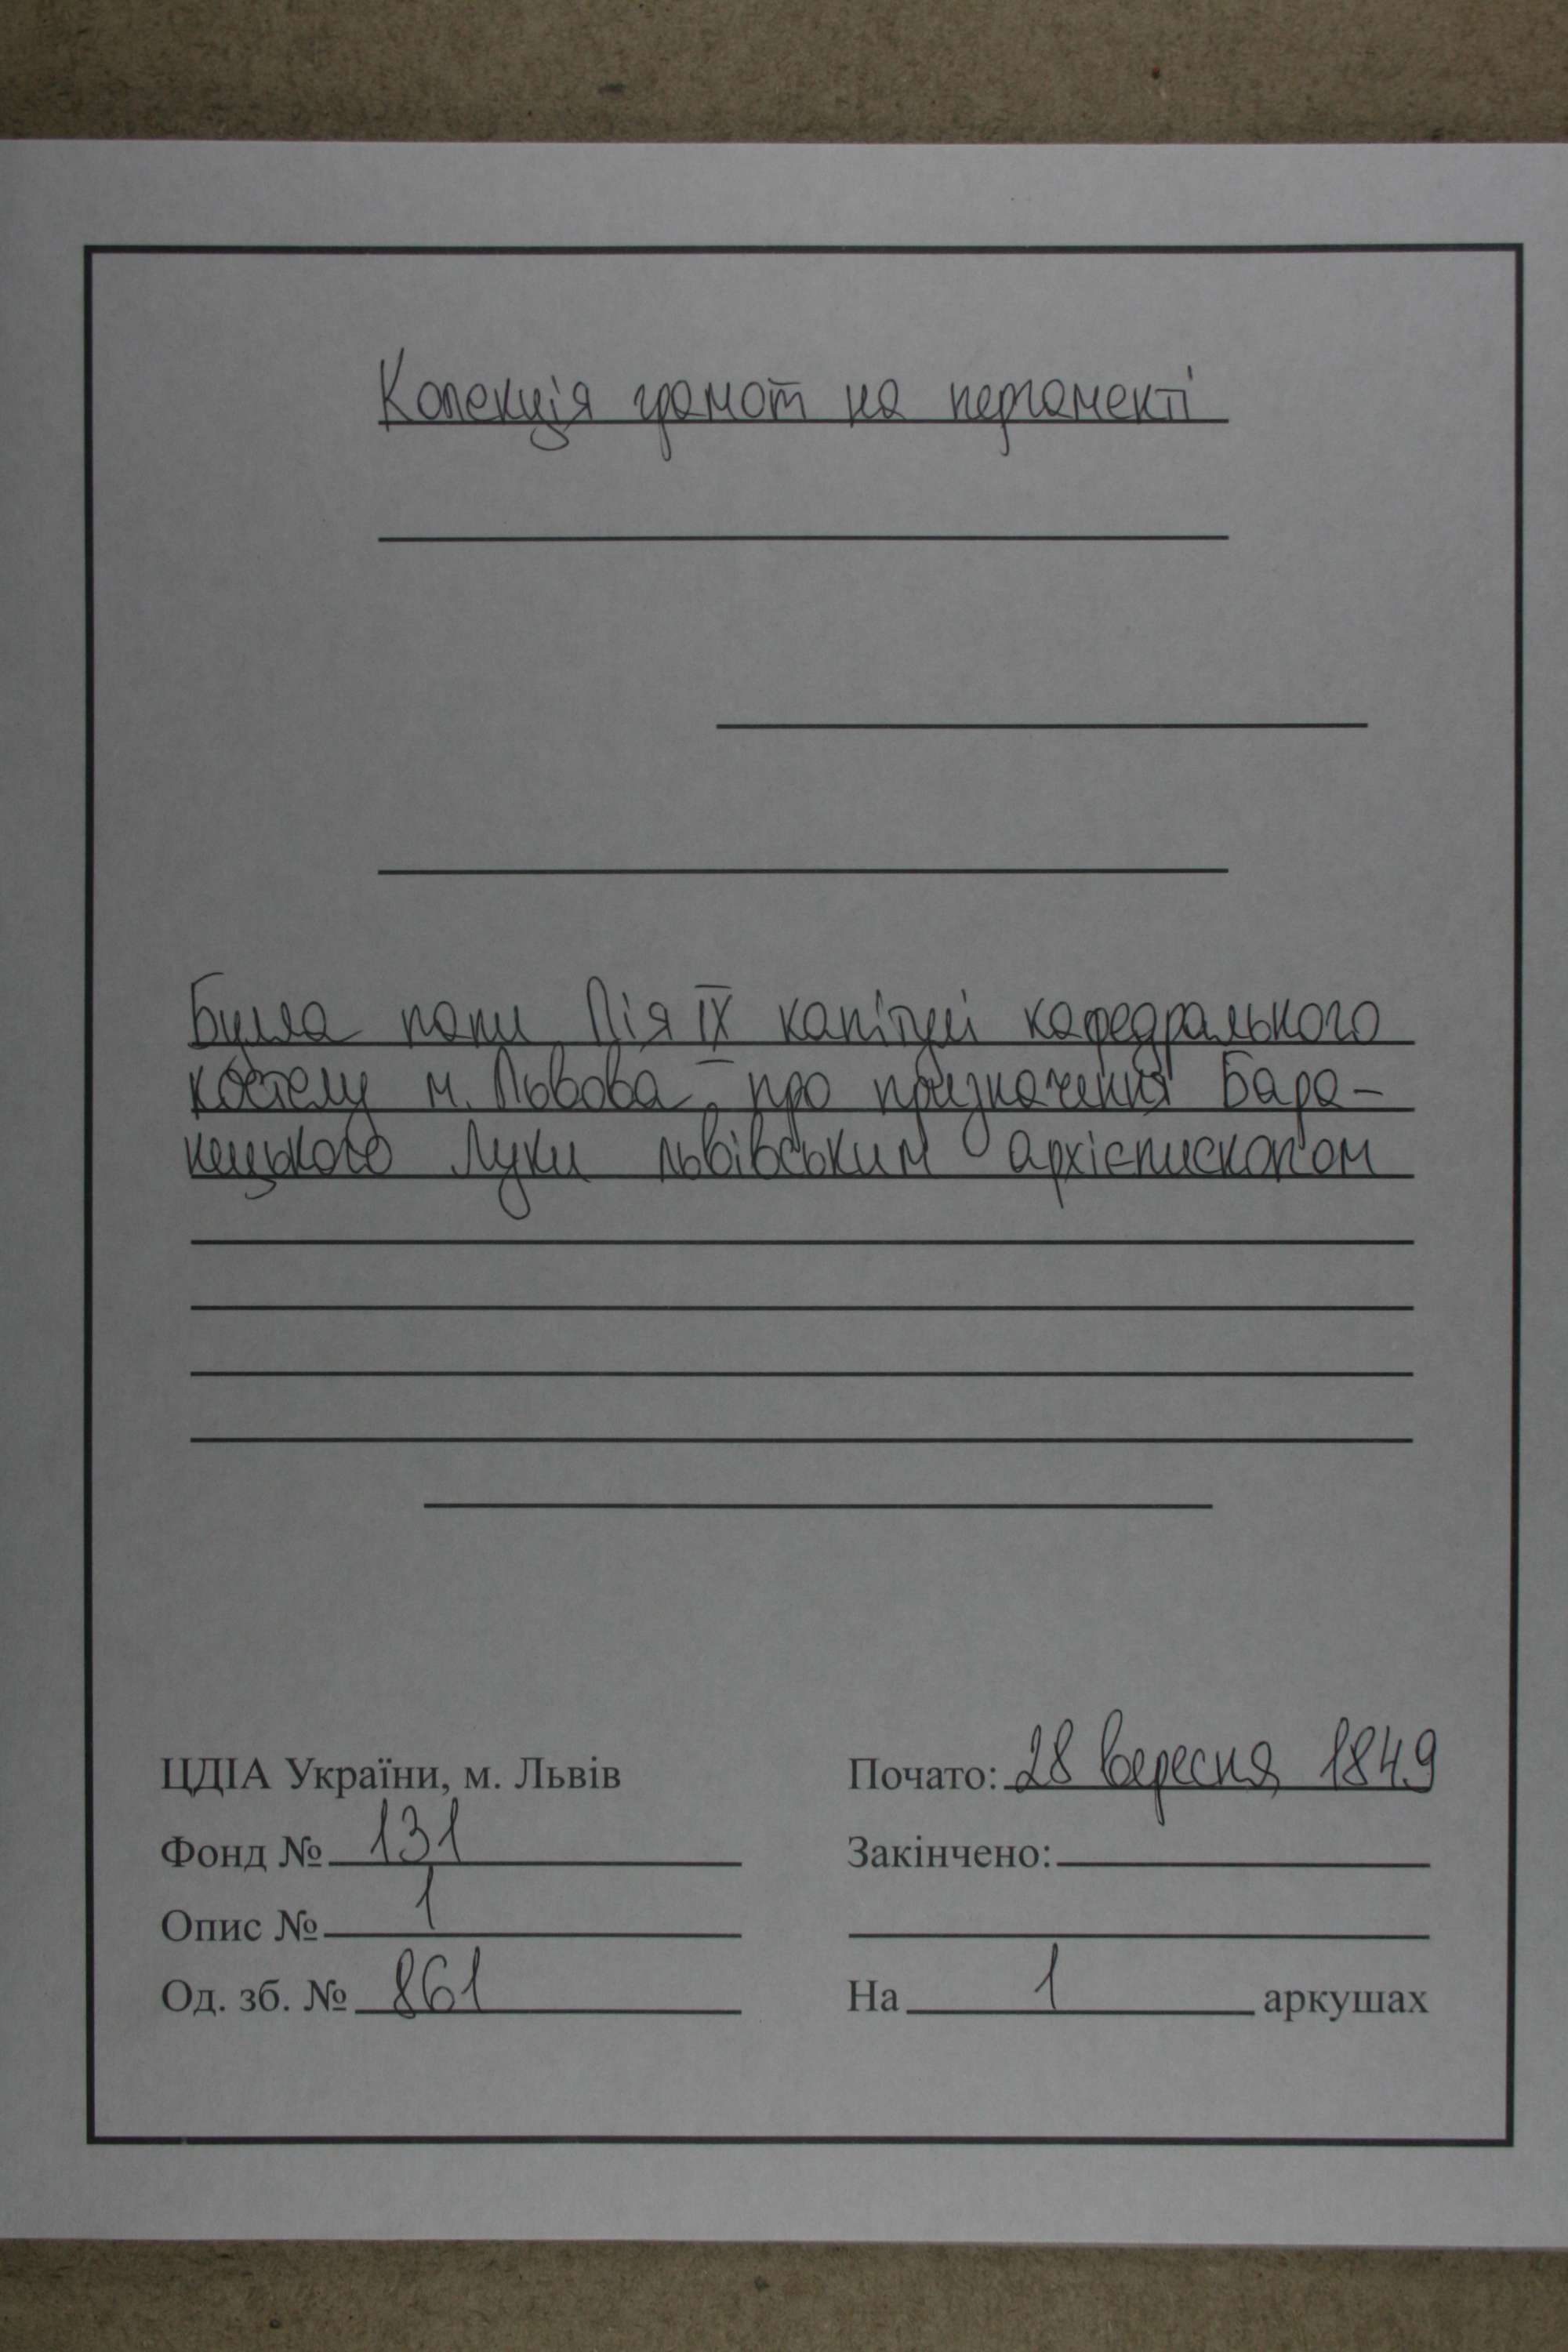 Колекція грамот на пергаменті
Булла папи Пія IX капітулі кафедрального
костелу м. Львова про призначення Бара-
нецького Луки львівським архієпископом
ЦДІА України, м. Львів
Фонд № 131
Опис № 1
Од. зб. № 861
Почато: 28 вересня 1849
Закінчено:
На 1 аркушах